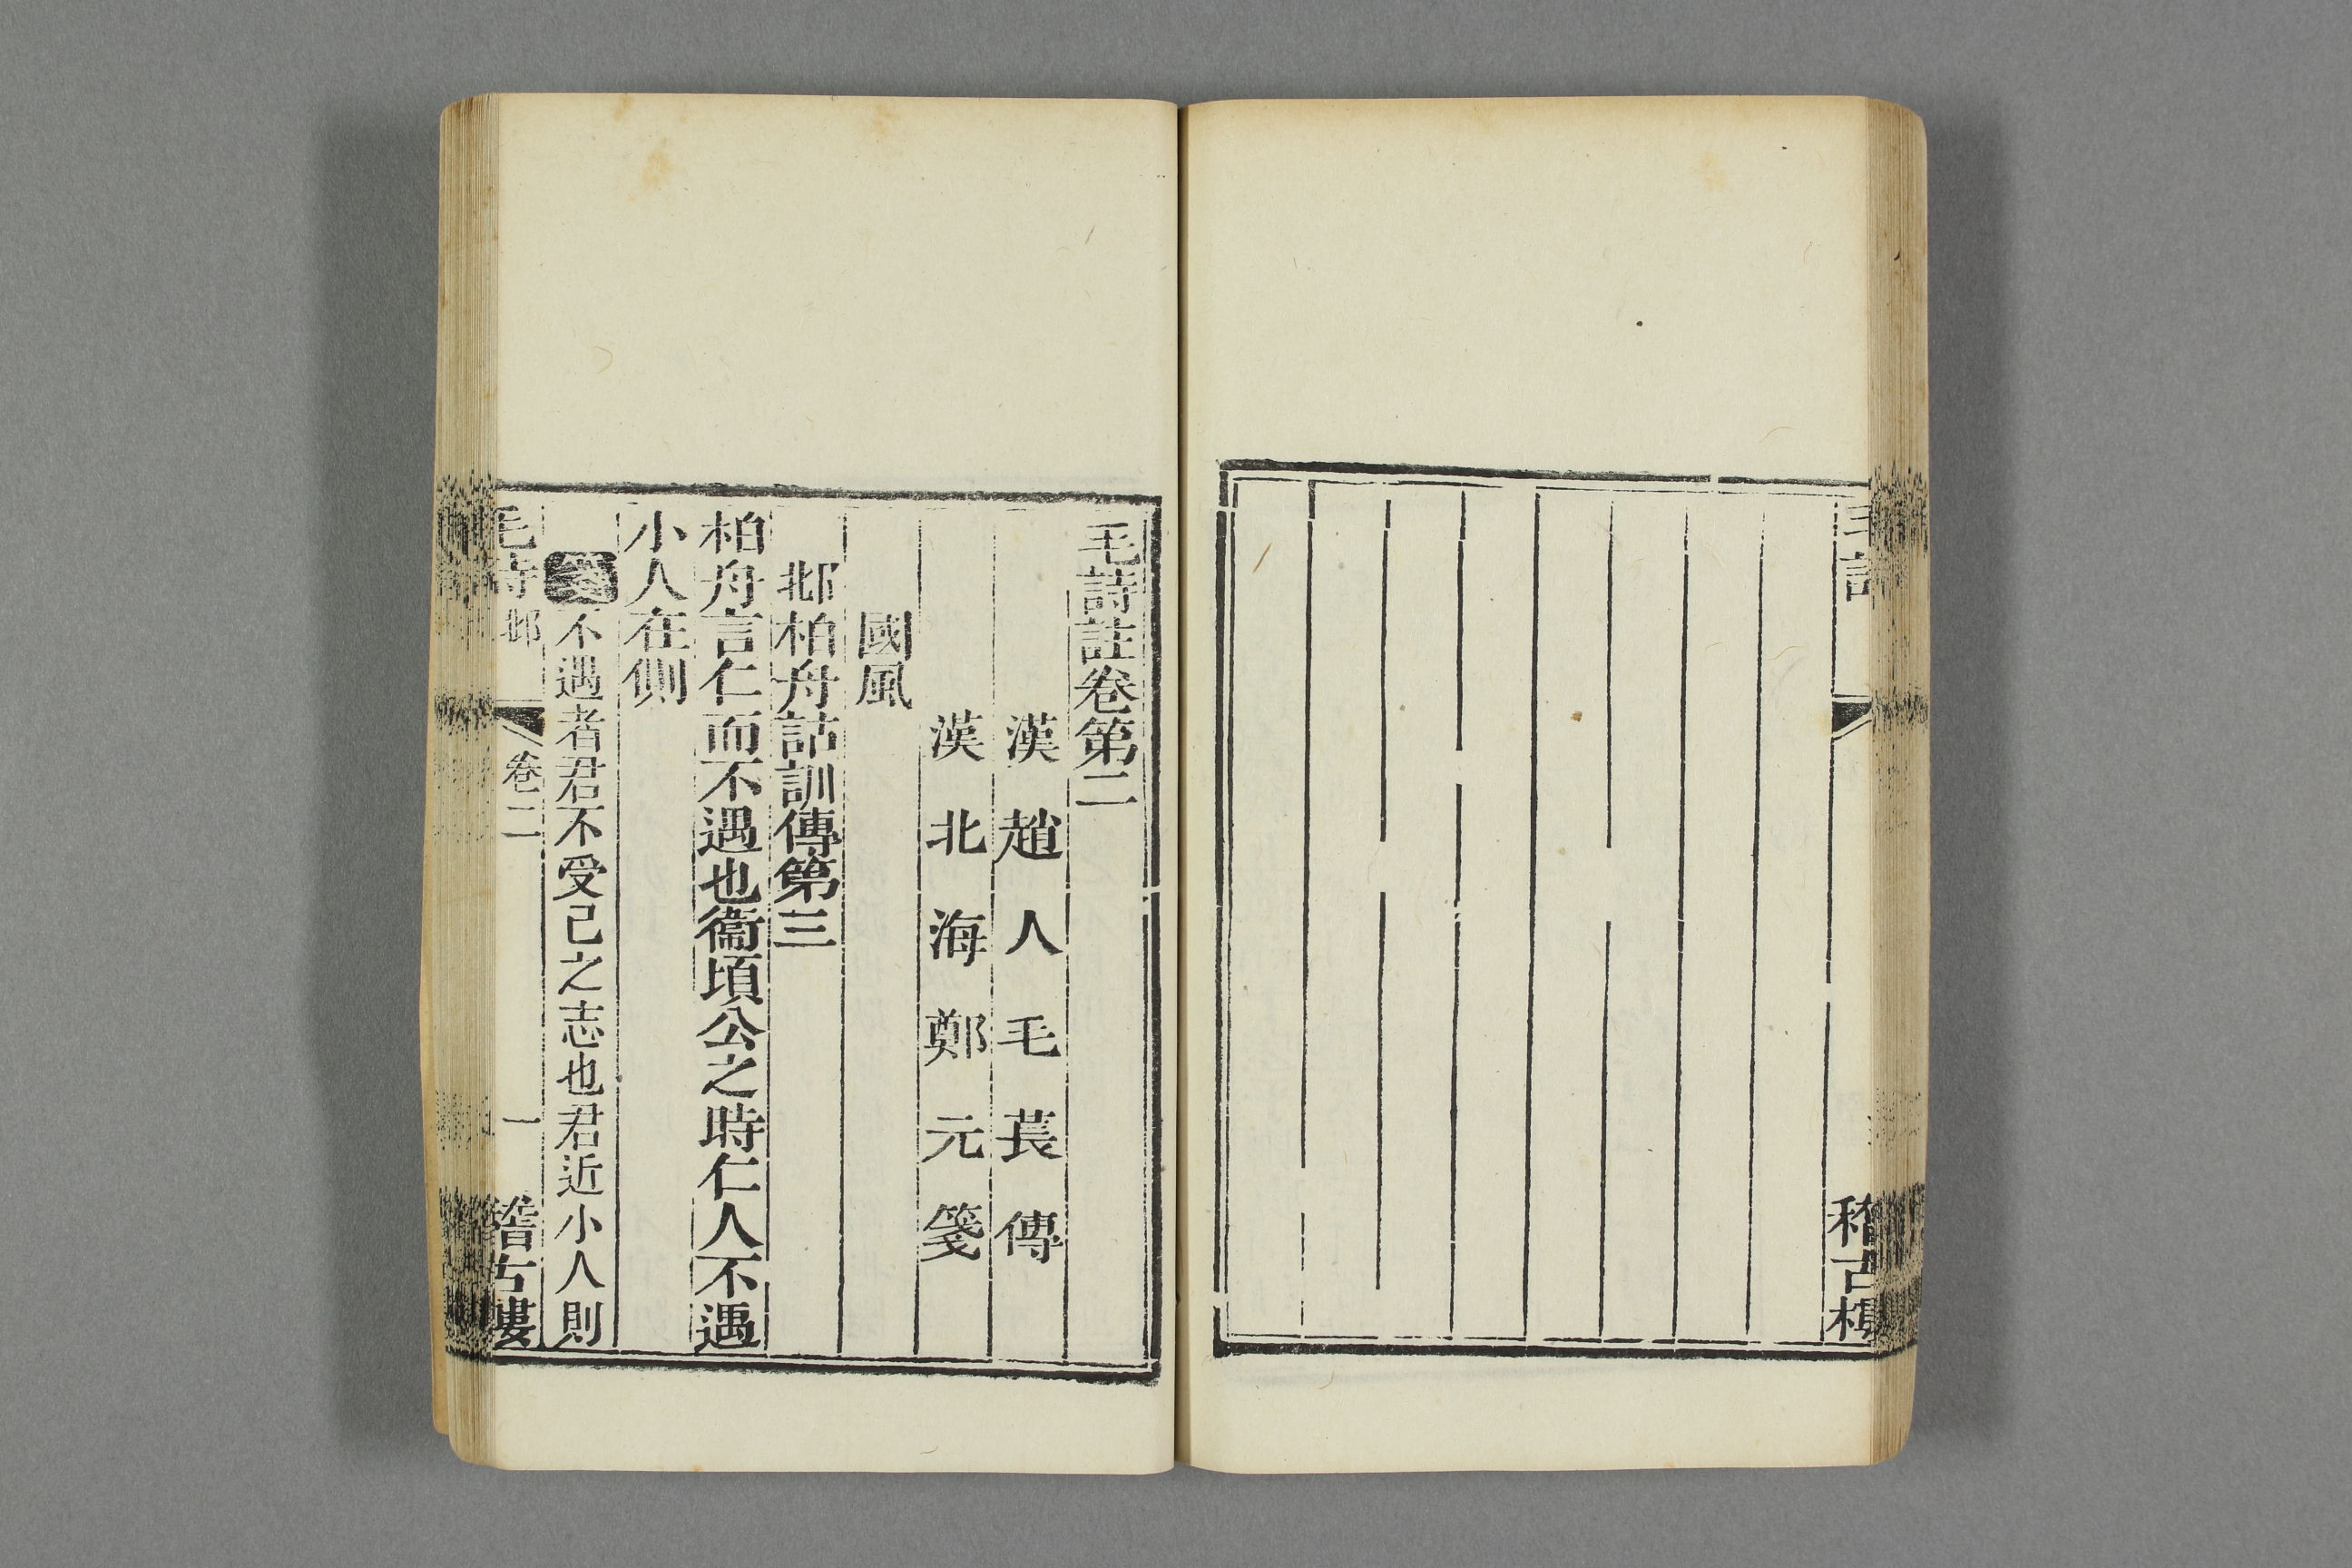 毛詩
稽古樓
毛詩註卷第二
漢趙人毛萇傳
漢北海鄭元箋
國風
邶柏舟詁訓傳第三
柏舟言仁而不遇也衞頃公之時仁人不遇
小人在側
箋不遇者君不受己之志也君近小人則
毛詩邶 卷二 一 稽古樓